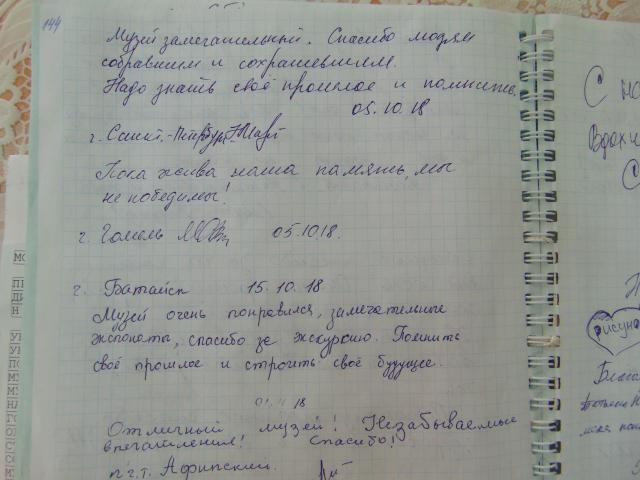 144
Музей замечательный. Спасибо людям
собравшим и сохранившим.
Надо знать своё прошлое и помнить.
05.10.18
г. Санкт-Петербург
Пока жива наша память, мы
не победимы!
г. Гомель 05.10.18.
г. Батайск 15.10.18
Музей очень понравился, замечательные
экспонаты, спасибо за экскурсию. Помнить
своё прошлое и строить своё будущее.
18
Отличный музей! Незабываемые
впечатления! Спасибо!
пгт. Афипский.
С
Вдохн
С
рисуно
Блага